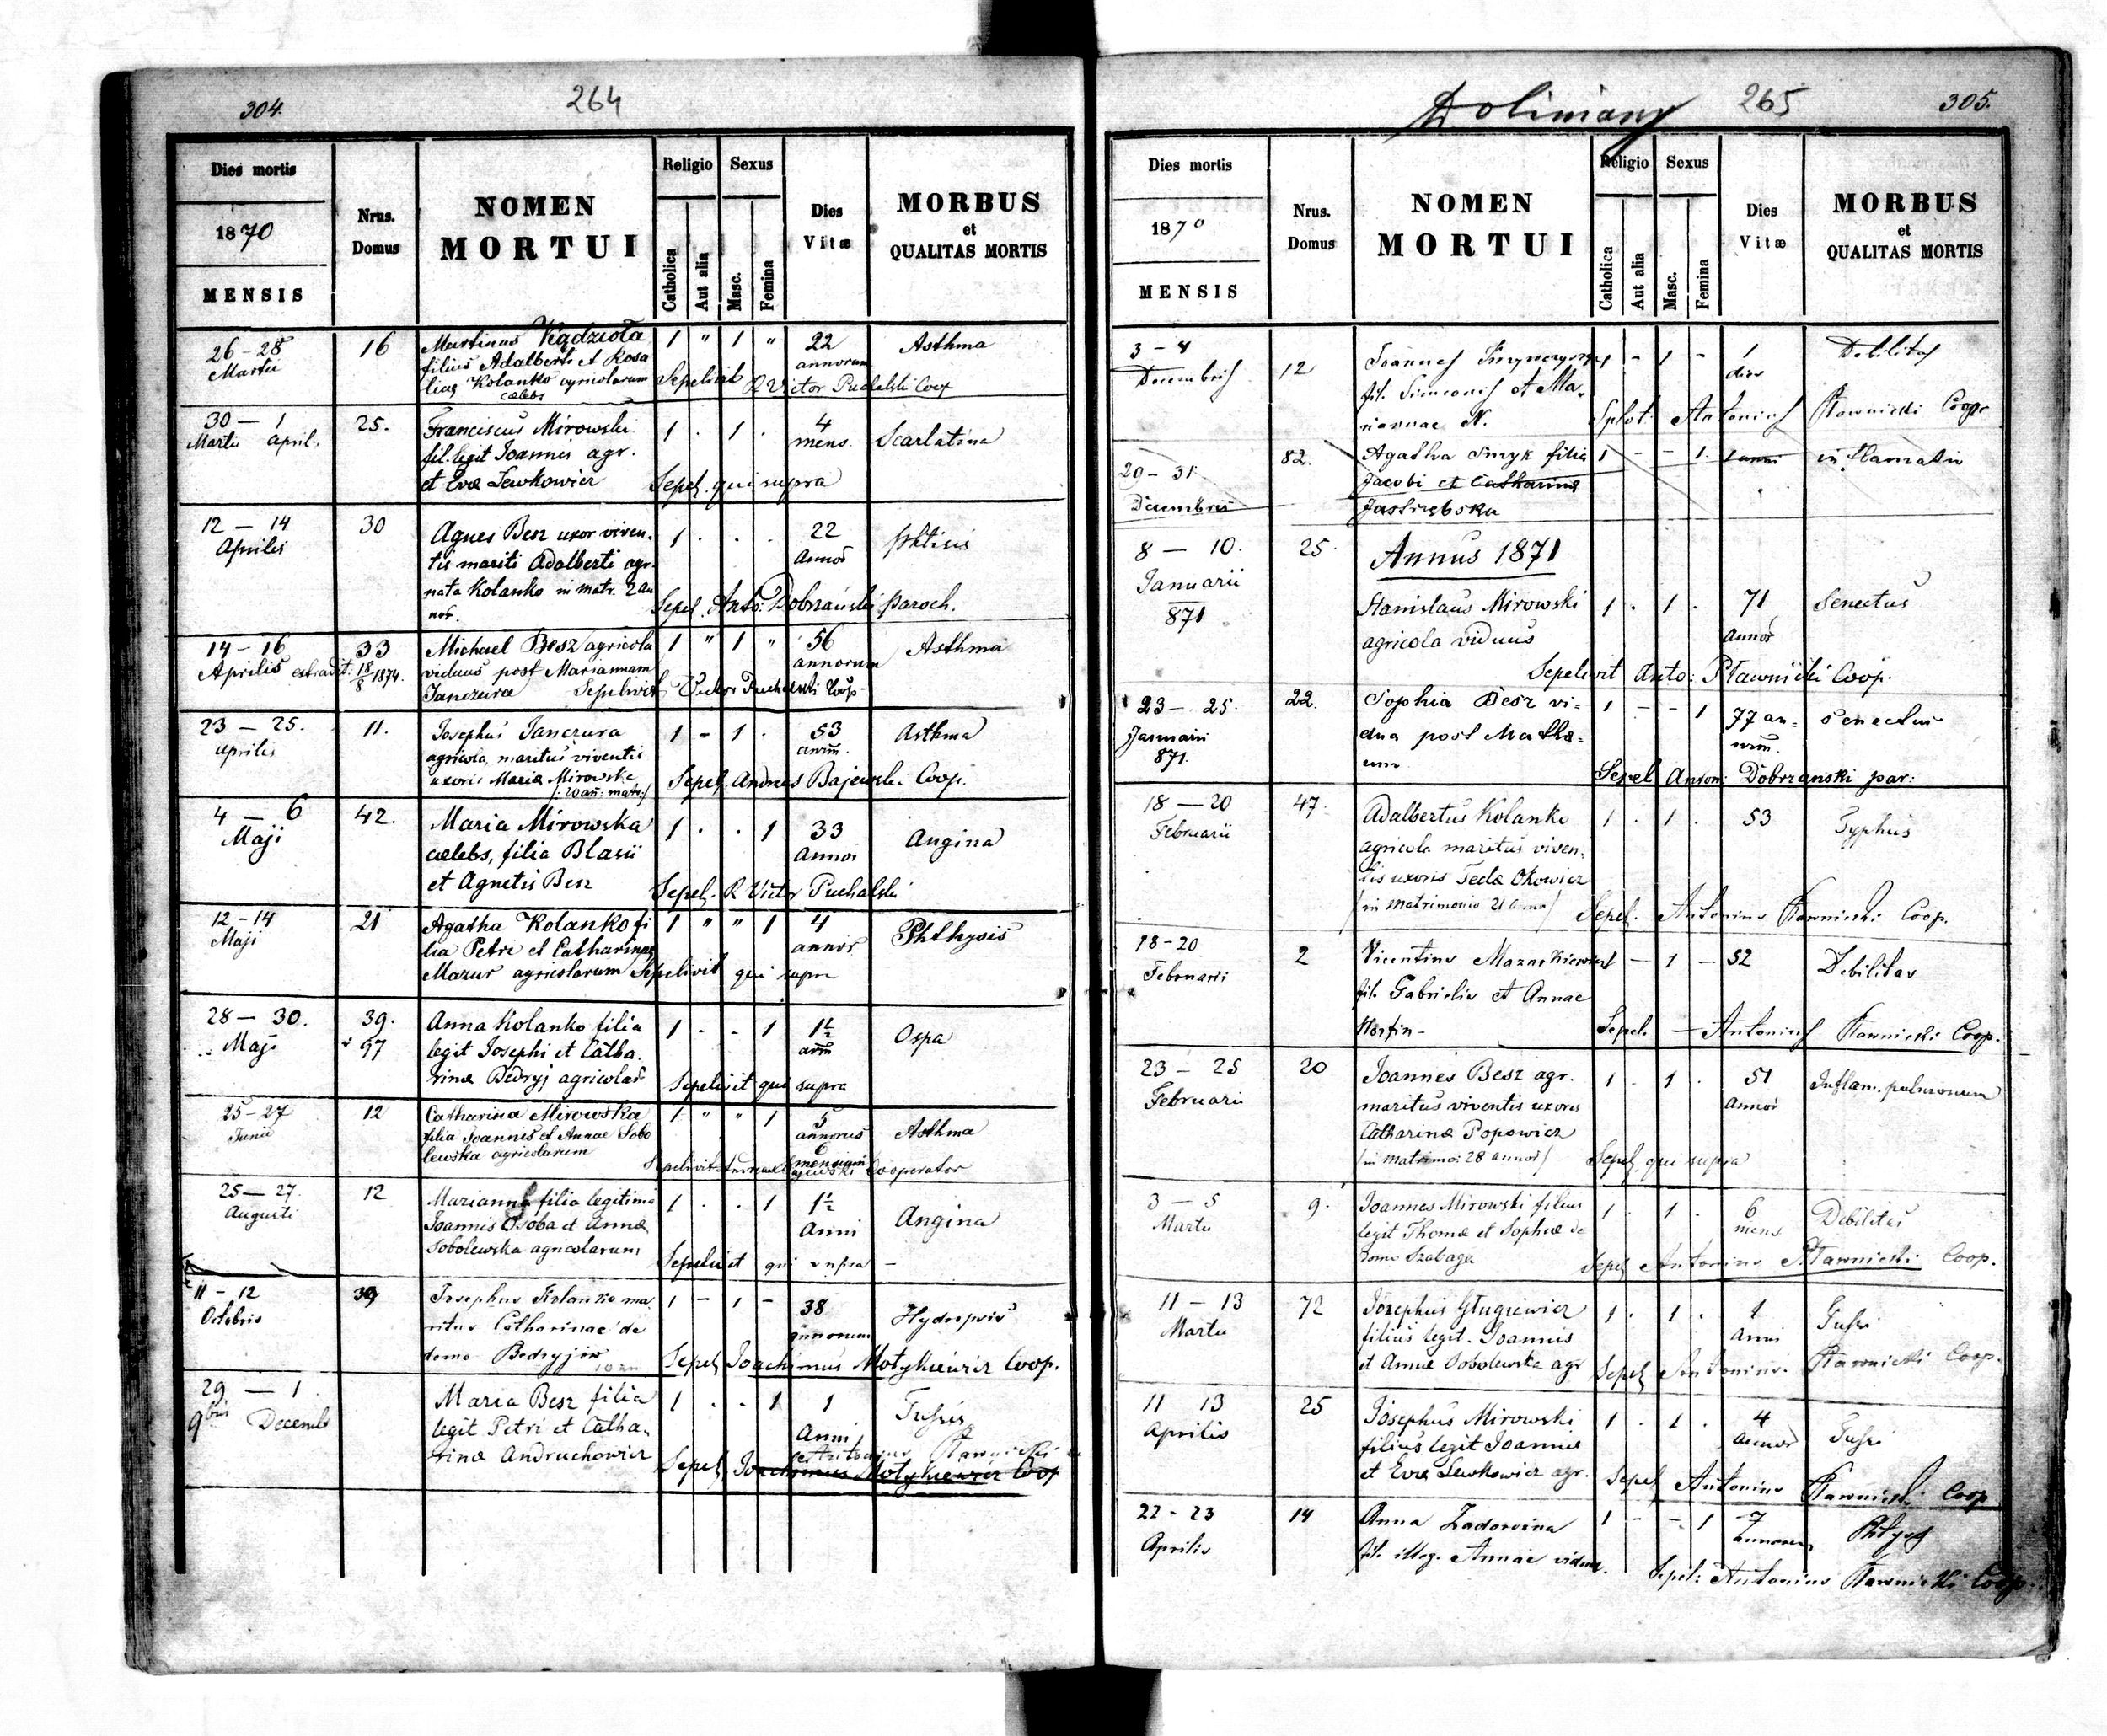 304.
264
Dies mortis
1870
MENSIS
Nrus.
Domus
NOMEN
MORTUI
Religio
Catholica
Aut alia
Sexus
Masc.
Femina
Dies
Vitæ
MORBUS
et
QUALITAS MORTIS
26-28 16 Martinus 1 " 1 " 22 Asthma
Martii filius Adalberti et Rosa annorum
liae Kolanko agricolarum Sepelivit R Victor Puchalski Coop
cælebs
30 - 1 25. Franciscus Mirowski 1 . 1 . 4 Scarlatina
Martii April. fil. legit Joannis agr. mens.
et Evæ Lewkowicz Sepel. qui supra
12 - 14 30 Agnes Besz uxor viven- 1 . . . 22 phtisis
Aprilis tis mariti Adalberti agr. Annor
nata Kolanko in matr. 2 an
nor. Sepel. Anto: Dobrzański paroch.
14-16 33 Michael Besz agricola 1 " 1 " 56 Asthma
Aprilis extradit: 18/8 1874. viduus post Mariannam annorum
Janczura Sepelivit Victor Puchalski Coop
23 - 25. 11. Josephus Janczura 1 - 1 . 53 Asthma
Aprilis agricola, maritus viventis
uxoris Maria Mirowska
/: 20 añ: matr:/ Sepel. Andreas Bajewski Coop.
4 - 6 42. Maria Mirowska 1 . . 1 33 Angina
Maji cælebs, filia Blasii Annor
et Agnetis Besz Sepel. R Victor Puchalski
12-14 21 Agatha Kolanko fi 1 " " 1 4 Phthysis
Maji lia Petri et Catharinae annor
Mazur agricolarum Sepelivit qui supra
28 - 30. 39. Anna Kolanko filia 1 . - 1 1½ Ospa
Maji 97 legit Josephi et Catha-
rinæ Bedryj agricolar Sepelivit qui supra
25-27 12 Catharina Mirowska 1 " " 1 5 Asthma
Junii filia Joannis et Annae Sobo annorum 6
lewska agricolarum mensium
Sepelivit Andreas Bajewski Cooperator
25 - 27. 12 Marianna filia legitima 1 . . 1 1½ Angina
Augusti Joannis Osoba et Annæ Anni
Sobolewska agricolarum Sepelivit qui supra -
11 - 12 39 Josephus Kolanko ma 1 - 1 - 38 Hydropsis
Octobris ritus Catharinae de annorum
domo Bedryjów Sepel Joachimus Motykiewicz Coop.
29 - 1 Maria Besz filia 1 . . 1 1 Tussis
9bris Decembr legit Petri et Catha- Anni
rinæ Andruchowicz Antonius Pławnicki
Sepel Joachimus Motykiewicz Coop
Doliniany
265
305.
Dies mortis
1870
MENSIS
Nrus.
Domus
NOMEN
MORTUI
Religio
Catholica
Aut alia
Sexus
Masc.
Femina
Dies
Vitæ
MORBUS
et
QUALITAS MORTIS
3 - 4 12 Joannes 1 - 1 - 1 Debilitas
Decembris fil. Simeonis et Ma- dies
riannae N. Antonius Pławnicki Coop
29 - 31 82. Agatha Smyk filia 1 - - 1. 1 anni inflamatio
Decembris Jacobi et Catharina
Jastrzębska
Annus 1871
8 - 10. 25. Stanislaus Mirowski 1 . 1 . 71 Senectus
Januarii agricola viduus Annor
871 Sepelivit Anto: Pławnicki Coop.
23 - 25. 22. Sophia Besz vi- 1 - - 1 77 an- senectus
Januarii dua post Mathæ- norum.
871. um Sepel. Anton: Dobrzanski par:
18 - 20 47. Adalbertus Kolanko 1 . 1 . 53 Typhus
Februarii agricola maritus viven-
tis uxoris Teclæ Okowicz
Sepel. Antonius Pławnicki Coop.
18-20 2 Vicentius 1 - 1 - 52 Debilitas
Februarii fil. Gabrielis et Annae
Sepel. - Antonius Pławnicki Coop.
23 - 25 20 Joannes Besz agr. 1 . 1 . 51 Inflam. pulmonum
Februarii maritus viventis uxoris Annor
Catharinæ Popowicz
/in matrimo: 28 annor/ Sepel. qui supra
3 - 5 9. Joannes Mirowski filius 1 . 1 . 6 Debilitas
Martii legit Thomæ et Sophiæ de mens
domo Szabaga Sepel Antonius Pławnicki Coop.
11 - 13 72 Josephus Gługiewicz 1 . 1 . 1 Tussi
Martii filius legit. Joannis Anni
et Annæ Sobolewska agr Sepel Antonius. Pławnicki Coop.
11 13 25 Josephus Mirowski 1 . 1 . 4 Tussi
Aprilis filius legit Joannis Annor
et Evæ Lewkowicz agr. Sepel Antonius Pławnicki Coop
22 - 23 14 Anna Zadorvina 1 - - 1 7
Aprilis fil. illeg. Annae viduae. annorum
Sepel: Antonius Pławnicki Coop.